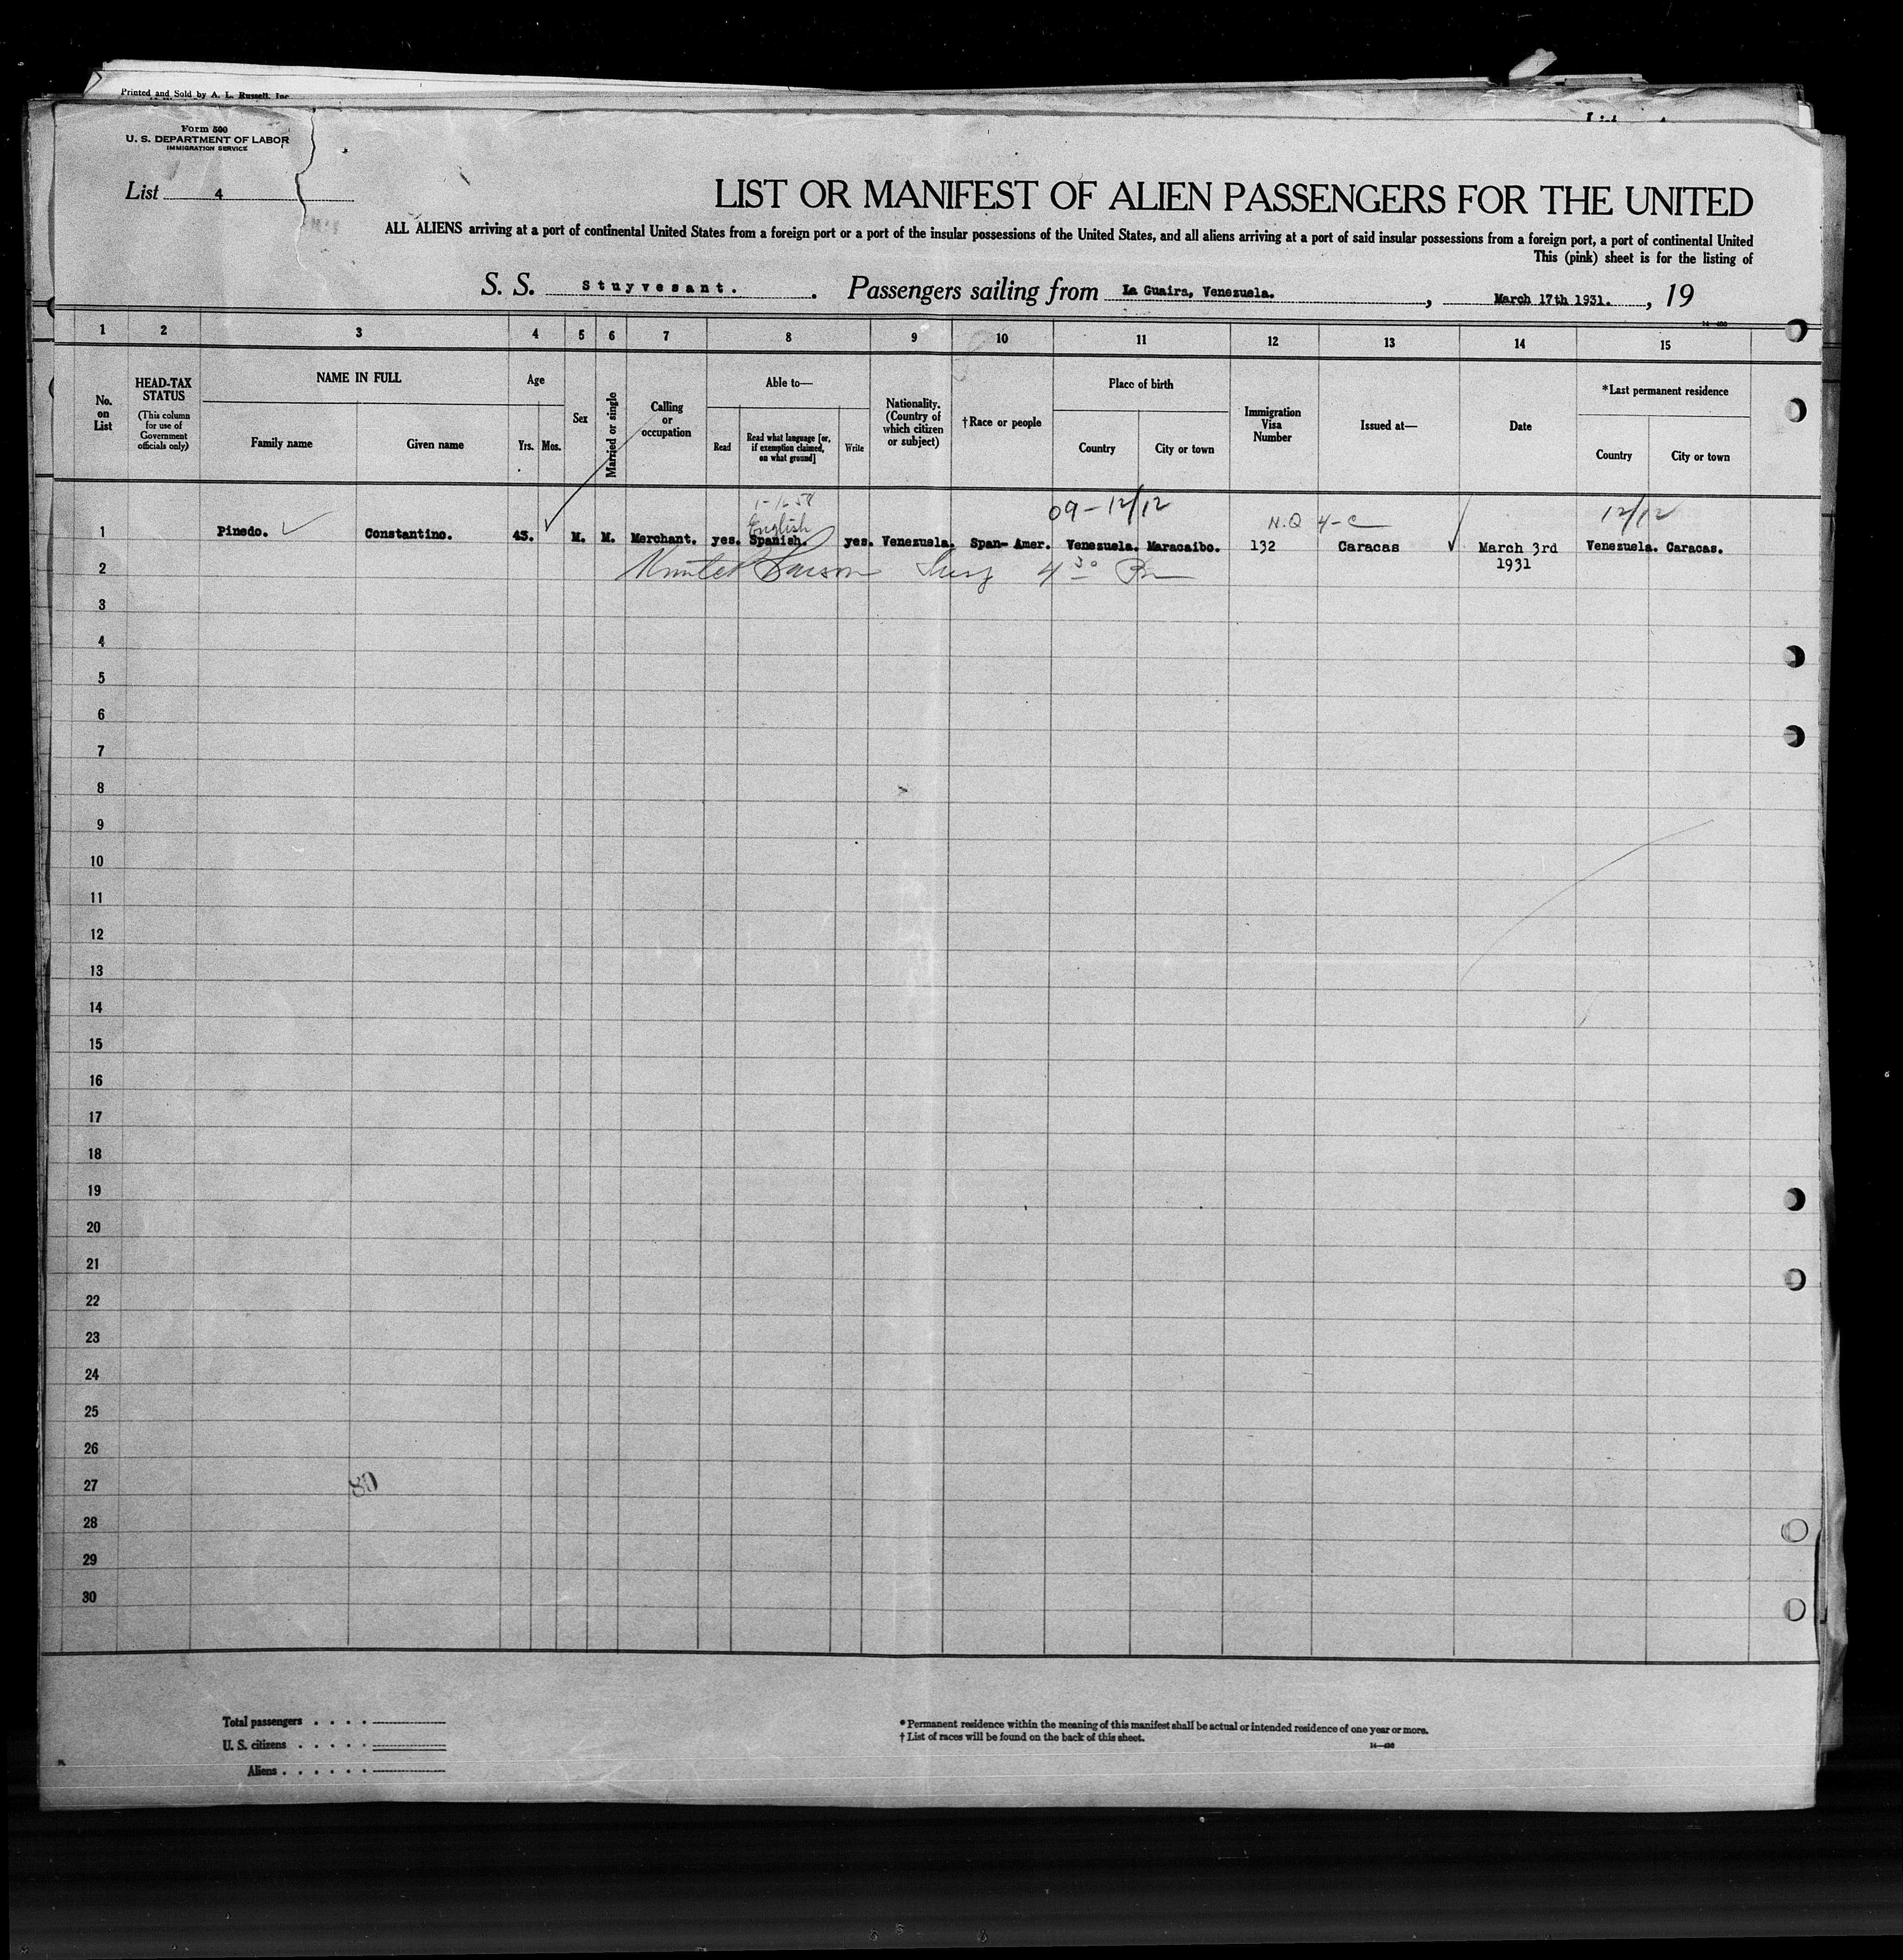 Printed and Sold by A. L. Russell, Inc
Form 500
U. S. DEPARTMENT OF LABOR
IMMIGRATION SERVICE
List 4
LIST OR MANIFEST OF ALIEN PASSENGERS FOR THE UNITED
ALL ALIENS arriving at a port of continental United States from a foreign port or a port of the insular possessions of the United States, and all aliens arriving at a port of said insular possessions from a foreign port, a port of continental United
This (pink) sheet is for the listing of
S. S. Stuyvesant. Passengers sailing from La Guaira, Venezuela. , March 17th 1931. , 19
14—430
1 2 3 4 5 6 7 8 9 10 11 12 13 14 15
No. on List
HEAD-TAX STATUS
(This column for use of Government officials only)
NAME IN FULL
Family name
Given name
Age
Yrs. Mos.
Sex
Married or single
Calling or occupation
Able to—
Read
Read what language [or, if exemption claimed, on what ground]
Write
Nationality. (Country of which citizen or subject)
†Race or people
Place of birth
Country
City or town
Immigration Visa Number
Issued at—
Date
*Last permanent residence
Country
City or town
09-12/12
12/12
English
N.Q 4-C
1 Pinedo. Constantino. 43. M. M. Merchant. yes. Spanish. yes. Venezuela. Span-Amer. Venezuela. Maracaibo. 132 Caracas March 3rd Venezuela. Caracas.
1931
2 4 30
3
4
5
6
7
8
9
10
11
12
13
14
15
16
17
18
19
20
21
22
23
24
25
26
27
80
28
29
30
Total passengers . . . .
U. S. citizens . . . . .
Aliens . . . . . .
* Permanent residence within the meaning of this manifest shall be actual or intended residence of one year or more.
† List of races will be found on the back of this sheet.
14—430